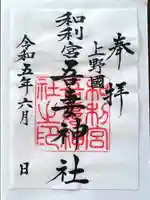 奉拝
上野國
和利宮
吾妻神社
令和五年六月 日
和利宮